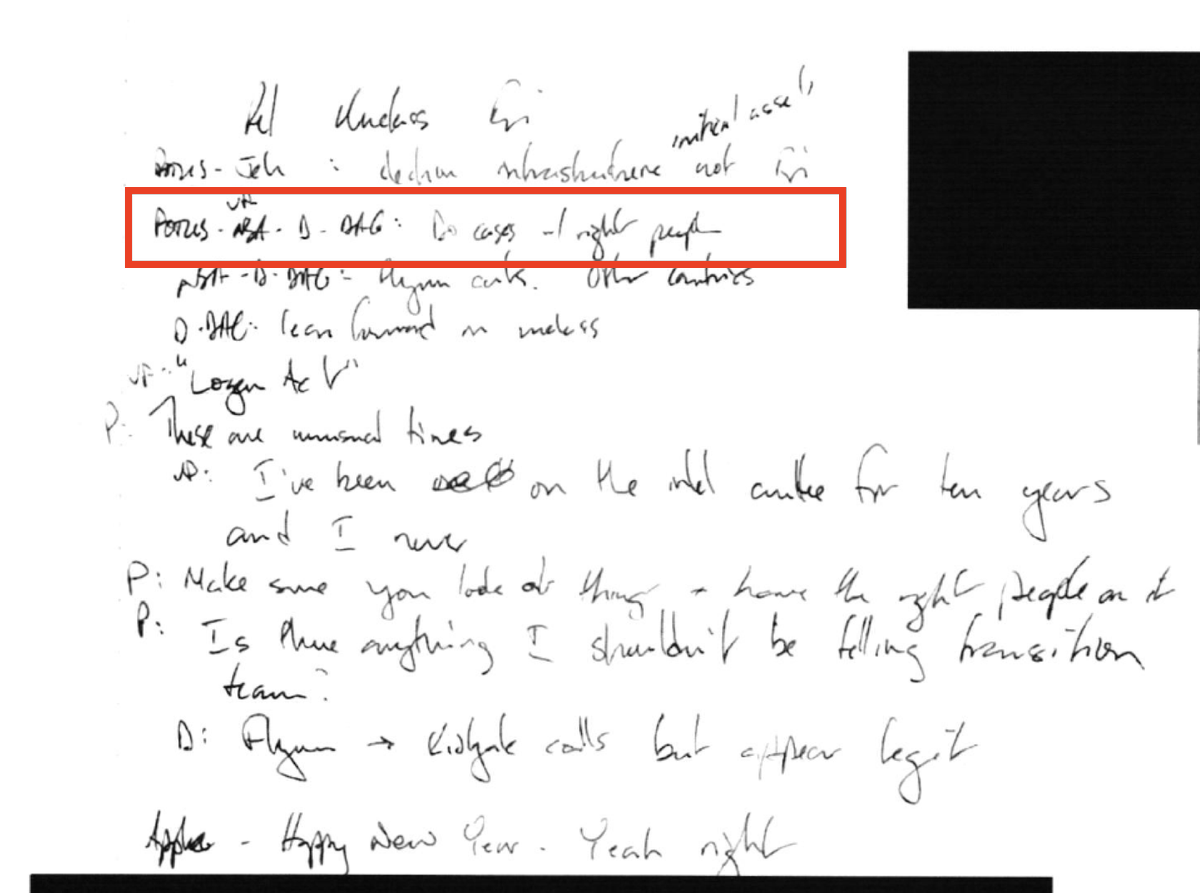 Rel Unclass
initial assess
POTUS - Jeh : election infrastructure not
VP
POTUS - NSA - D - DAG: Do cases right people
NSA - D - DAG: Flynn cuts. Other countries
D-DAG: lean forward on unclass
VP: "Logan Act"
P: These are unusual times
VP: I've been on the intel cmttee for ten years
and I never
P: Make sure you look at things - have the right people on it
P: Is there anything I shouldn't be telling transition
team?
D: Flynn → Kislyak calls but appear legit
- Happy New Year. Yeah right